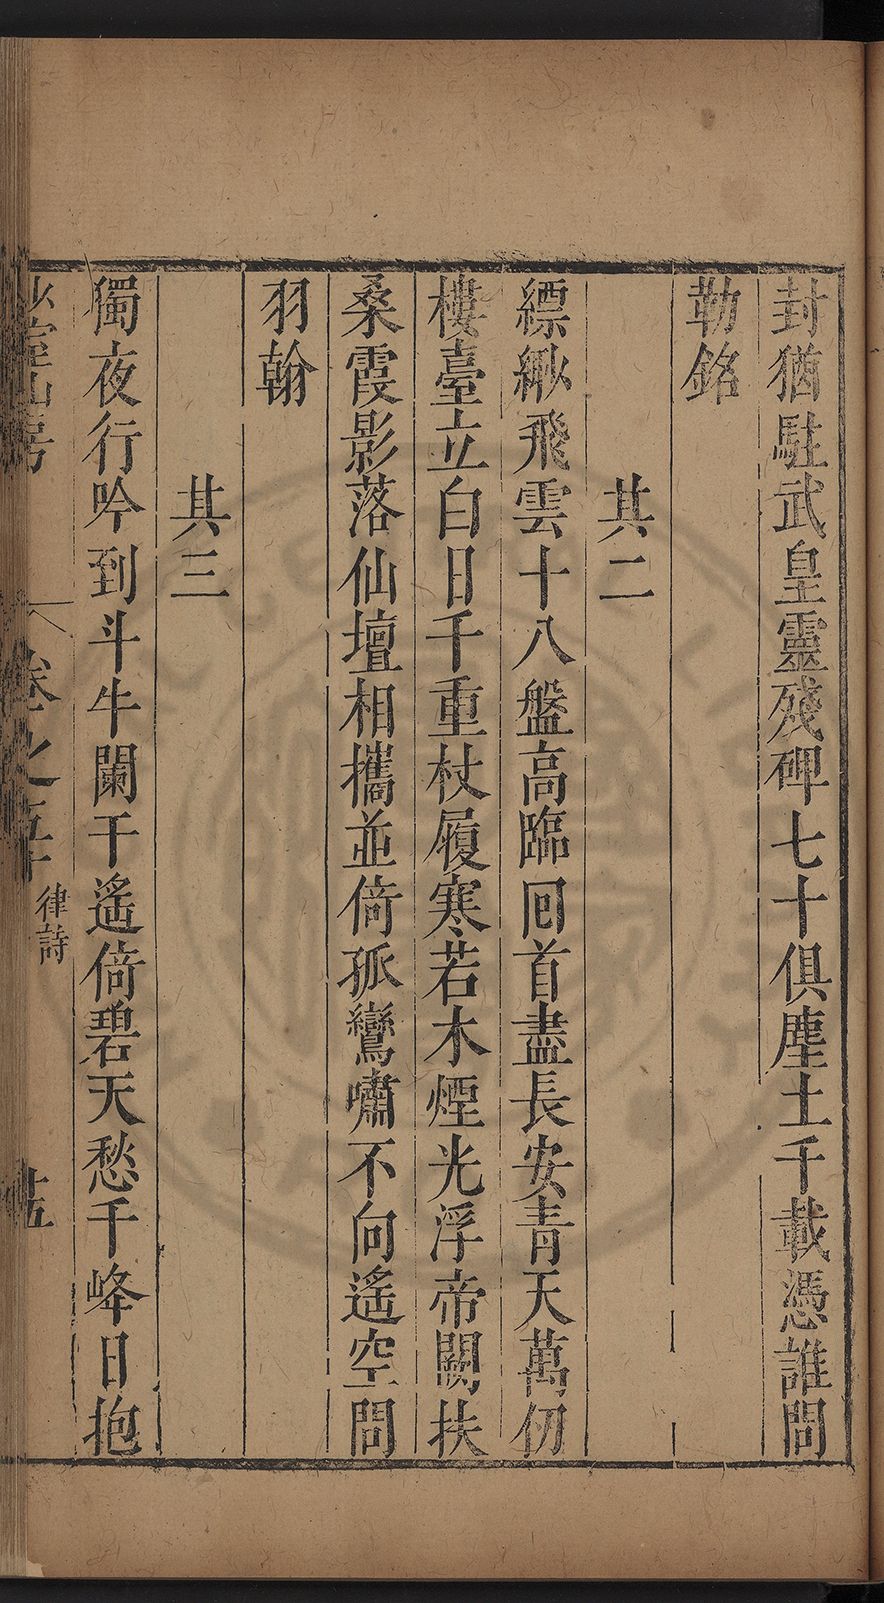 封猶駐武皇靈殘碑七十俱塵土千載憑誰問
勒銘
其二
縹緲飛雲十八盤高臨回首盡長安青天萬仞
樓臺立白日千重杖履寒若木煙光浮帝闕扶
桑霞影落仙壇相攜並倚孤鸞嘯不向遙空問
羽翰
其三
獨夜行吟到斗牛闌干遙倚碧天愁千峰日抱
山房
卷之五十
律詩